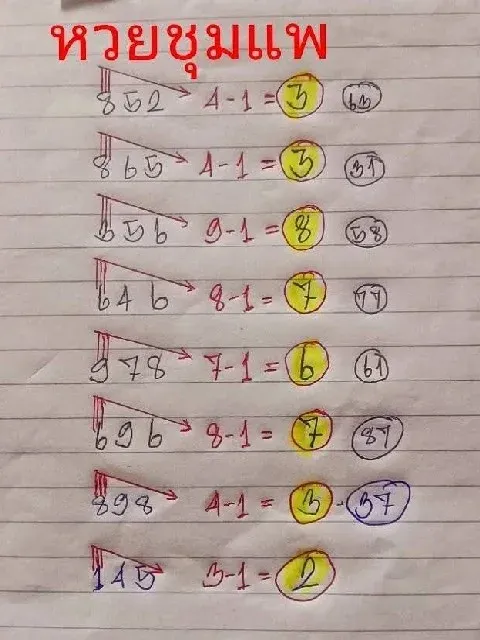 หวยชุมแพ
852 4-1 = 3 63
865 4-1 = 3 31
656 9-1 = 8 58
646 8-1 = 7 77
978 7-1 = 6 61
696 8-1 = 7 87
898 4-1 = 3 - 37
145 3-1 = 2